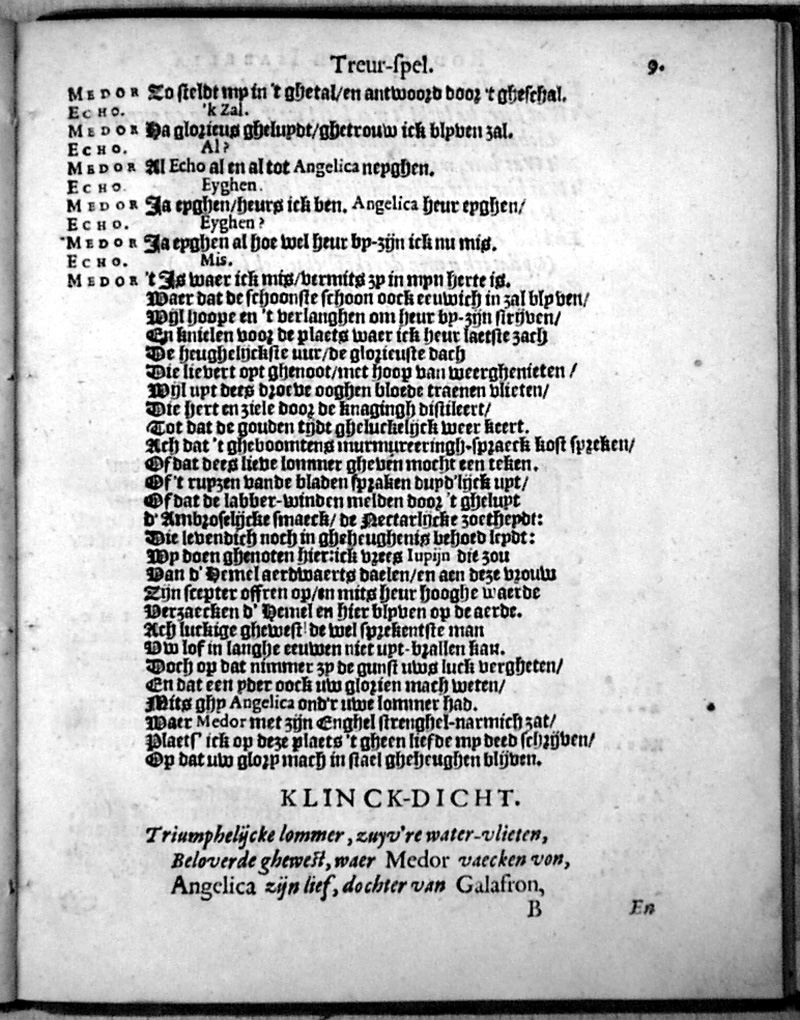 Treur-spel. 9.
MEDOR Zo steldt my in 't ghetal/en antwoord door 't gheschal.
ECHO. 'k Zal.
MEDOR Ha glorieus gheluydt/ghetrouw ick blyven zal.
ECHO. Al?
MEDOR Al Echo al en al tot Angelica neyghen.
ECHO Eyghen.
MEDOR Ja eyghen/heurs ick ben. Angelica heur eyghen/
ECHO. Eyghen?
MEDOR Ja eyghen al hoe wel heur by-zijn ick nu mis.
ECHO. Mis.
MEDOR 't Is waer ick mis/vermits zy in myn herte is.
Waer dat de schoonste schoon oock eeuwich in zal blyven/
Wijl hoope en 't verlanghen om heur by-zijn strijven/
En knielen voor de plaets waer ick heur laetste zach
De heughelijckste uur/de glorieuste dach
Die lievert opt ghenoot/met hoop van weerghenieten/
Wijl upt dees droeve ooghen bloede traenen vlieten/
Die hert en ziele door de knagingh distileert/
Tot dat de gouden tijdt gheluckelijck weer keert.
Ach dat 't gheboomtens murmureeringh-spraeck kost spreken/
Of dat dees lieve lommer gheven mocht een teken.
Of 't ruyzen vande bladen spraken duyd'lijck uyt/
Of dat de labber-winden melden door 't gheluyt
d'Ambroselijcke smaeck/de Nectarlijcke zoetheydt:
Die levendich noch in gheheughenis behoed leydt:
Wy doen ghenoten hier: ick vrees Iupijn die zou
Van d'Hemel aerdwaerts daelen/en aen deze vrouw
Zijn scepter offren op/en mits heur hooghe waerde
Verzaecken d'Hemel en hier blyven op de aerde.
Ach luckige ghewest! de wel sprekentste man
Uw lof in langhe eeuwen niet uyt-brallen kan.
Doch op dat nimmer zy de gunst uws luck vergheten/
En dat een yder oock uw glorien mach weten/
Mits ghy Angelica ond'r uwe lommer had.
Waer Medor met zijn Enghel strenghel-narmich zat/
Plaets' ick op deze plaets 't gheen liefde my deed schrijven/
Op dat uw glory mach in stael gheheughen blijven.
KLINCK-DICHT.
Triumphelijcke lommer, zuyv're water-vlieten,
Beloverde ghewest, waer Medor vaecken von,
Angelica zijn lief, dochter van Galafron,
B En